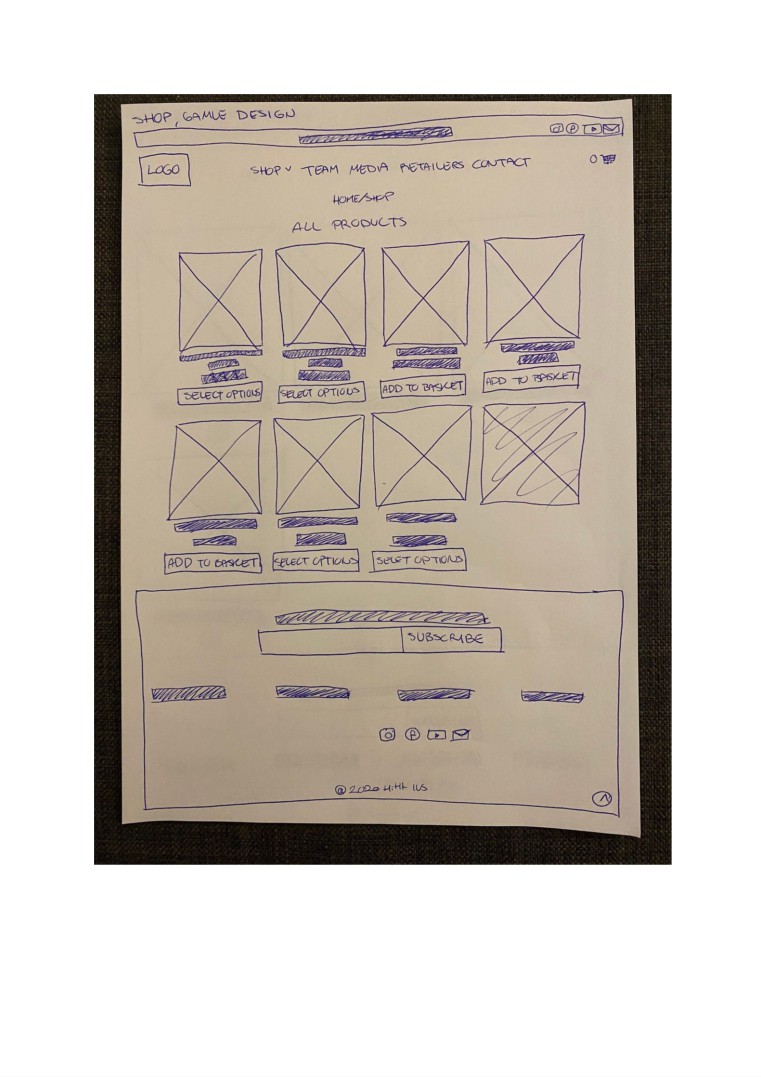 SHOP, GAMLE DESIGN
LOGO
SHOP ˅ TEAM MEDIA RETAILERS CONTACT
0
HOME/SHOP
ALL PRODUCTS
SELECT OPTIONS SELECT OPTIONS ADD TO BASKET ADD TO BASKET
ADD TO BASKET SELECT OPTIONS SELET OPTIONS
SUBSCRIBE
@ 2020